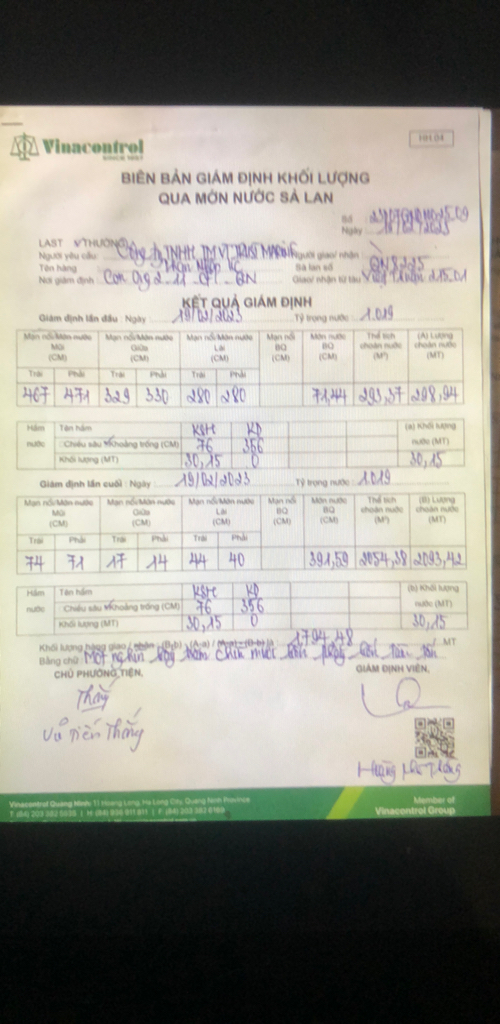 Vinacontrol
SINCE 1957
BIÊN BẢN GIÁM ĐỊNH KHỐI LƯỢNG
QUA MÓN NƯỚC SÀ LAN
Số
Ngày
LAST V/THƯỜNG
Người yêu cầu Công ty TNHH TM VT Người giao/ nhận
Tên hàng Than Sà lan số QN 8225
Nơi giám định Con Ong 2 - Giao/ nhận từ tàu
KẾT QUẢ GIÁM ĐỊNH
Giám định lần đầu : Ngày 19/02/2023 Tỷ trọng nước : 1.019
Mạn nổi/Món nước Mũi (CM) Mạn nổi/Món nước Giữa (CM) Mạn nổi/Món nước Lái (CM) Mạn nổi BQ (CM) Món nước BQ (CM) Thể tích choán nước (M³) (A) Lượng choán nước (MT)
Trái Phải Trái Phải Trái Phải
467 471 329 330 280 280 71,44 293,37 298,94
Hầm nước Tên hầm KSH KD (a) Khối lượng nước (MT)
Chiều sâu /Khoảng trống (CM) 76 356
Khối lượng (MT) 30,15 0 30,15
Giám định lần cuối : Ngày 19/02/2023 Tỷ trọng nước : 1.019
Mạn nổi/Món nước Mũi (CM) Mạn nổi/Món nước Giữa (CM) Mạn nổi/Món nước Lái (CM) Mạn nổi BQ (CM) Món nước BQ (CM) Thể tích choán nước (M³) (B) Lượng choán nước (MT)
Trái Phải Trái Phải Trái Phải
74 71 17 14 44 40 391,59 2054,38 2093,42
Hầm nước Tên hầm KSH KD (b) Khối lượng nước (MT)
Chiều sâu /Khoảng trống (CM) 76 356
Khối lượng (MT) 30,15 0 30,15
Khối lượng hàng giao / nhận (B-b) - (A-a) / 1794,48 MT
Bằng chữ: Một nghìn bảy trăm chín mươi bốn phẩy bốn tám tấn
CHỦ PHƯƠNG TIỆN, GIÁM ĐỊNH VIÊN,
Thắng
Vũ Tiến Thắng
Vinacontrol Quảng Ninh: 11 Hoang Long, Ha Long City, Quang Ninh Province
Member of
Vinacontrol Group